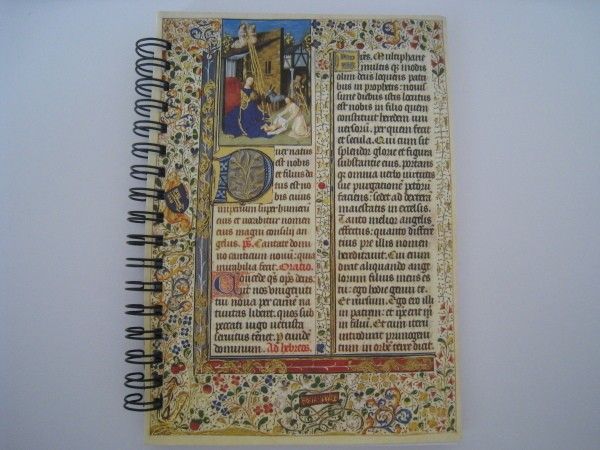 Puer natus
est nobis
et filius da
tus est no
bis cuius
imperium super humerū
eius et vocabitur nomen
eius magni consilij an
gelus. Ps. Cantate domi
no canticum novū: quia
mirabilia fecit. Oratio.
Concede qs ops deus:
ut nos unigeniti
tui nova per carnē na
tivitas liberet. quos sub
peccati iugo vetusta
servitus tenet. p eundē
dominum. Ad hebreos.
Fres. Multiphariē
multis qꝫ modis
olim deus loquens patri
bus in prophetis: novis
sime diebus istis locutus
est nobis in filio quem
constituit heredem uni
versorū. per quem fecit
et secula. Qui cum sit
splendor glorie et figura
substantie eius. portans
qꝫ omnia verbo virtutis
sue purgationē pctorū
faciens: sedet ad dexterā
maiestatis in excelsis.
Tanto melior angelis
effectus: quanto differē
tius pre illis nomen
hereditavit. Cui enim
dixit aliquando ange
lorum filius meus es
tu: ego hodie genui te.
Et rursum. Ego ero illi
in patrem: et ipe erit m
in filiū. Et cum iterū
introducit primogeni
tum in orbē terre dicit.